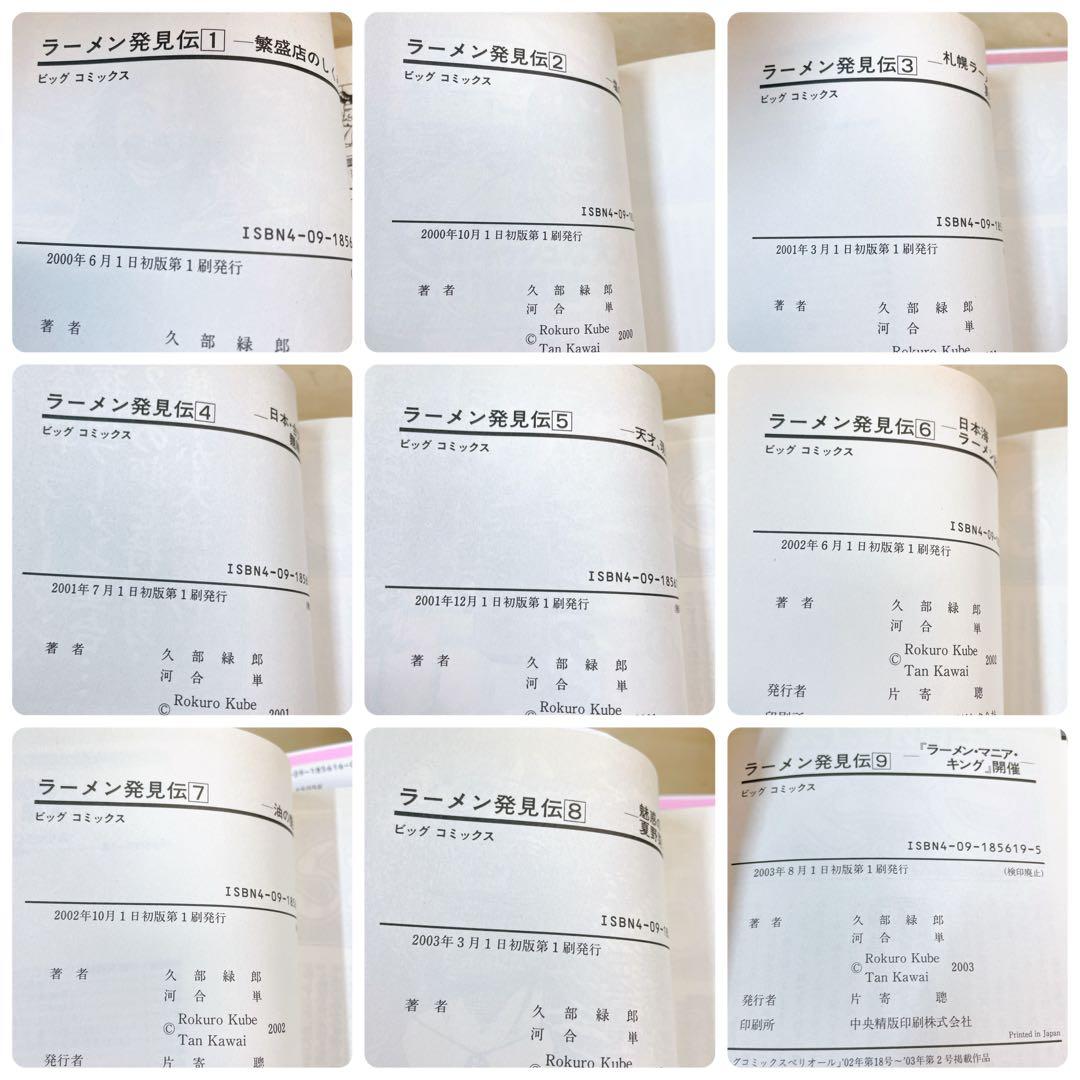 ラーメン発見伝1 ―繁盛店のしく
ビッグ コミックス
ISBN4-09-1856
2000年6月1日初版第1刷発行
著者 久部緑郎
ラーメン発見伝2
ビッグ コミックス
ISBN4-09-18
2000年10月1日初版第1刷発行
著者 久部緑郎
河合単
© Rokuro Kube 2000
Tan Kawai
ラーメン発見伝3 ―札幌ラー
ビッグ コミックス
ISBN4-09-185
2001年3月1日初版第1刷発行
著者 久部緑郎
河合単
Rokuro Kube
ラーメン発見伝4 ―日本・
ビッグ コミックス
ISBN4-09-1856
2001年7月1日初版第1刷発行
著者 久部緑郎
河合単
© Rokuro Kube 2001
ラーメン発見伝5 ―天才、
ビッグ コミックス
ISBN4-09-1856
2001年12月1日初版第1刷発行
著者 久部緑郎
河合単
© Rokuro Kube
ラーメン発見伝6 ―日本海
ラーメン
ビッグ コミックス
ISBN4-09-
2002年6月1日初版第1刷発行
著者 久部緑郎
河合単
© Rokuro Kube 2002
Tan Kawai
発行者 片寄聰
印刷所
ラーメン発見伝7 ―油の
ビッグ コミックス
09-185616-0
ISBN4-09-185
2002年10月1日初版第1刷発行
著者 久部緑郎
河合単
© Rokuro Kube 2002
Tan Kawai
発行者 片寄聰
ラーメン発見伝8 ―魅惑の
夏野
ビッグ コミックス
ISBN4-09-1
2003年3月1日初版第1刷発行
著者 久部緑郎
河合単
© Rokuro Kube
ラーメン発見伝9 ―『ラーメン・マニア・
キング』開催
ビッグ コミックス
ISBN4-09-185619-5
2003年8月1日初版第1刷発行 (検印廃止)
著者 久部緑郎
河合単
© Rokuro Kube 2003
Tan Kawai
発行者 片寄聰
印刷所 中央精版印刷株式会社
Printed in Japan
グコミックスペリオール」'02年第18号~'03年第2号掲載作品